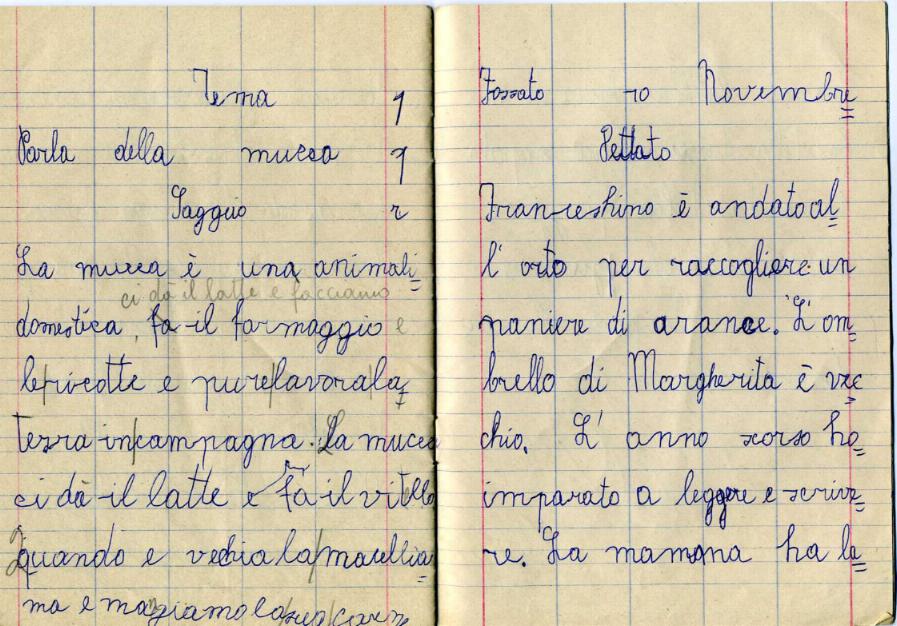 Tema
Parla della mucca
Saggio
La mucca è una animali=
ci dà il latte e facciamo
domestica, fa il formaggio e
le ricotte e pure lavora la
terra in campagna. La mucca
ci dà il latte e fa il vitello
quando e vechia la macellia=
mo e magiamo la sua carne
Fossato 10 Novembre
Dettato
Franceshino è andato al=
l'orto per raccogliere un
paniere di arance. L'om=
brello di Margherita è vec=
chio. L'anno scorso ho
imparato a leggere e scrive=
re. La mamma ha la=